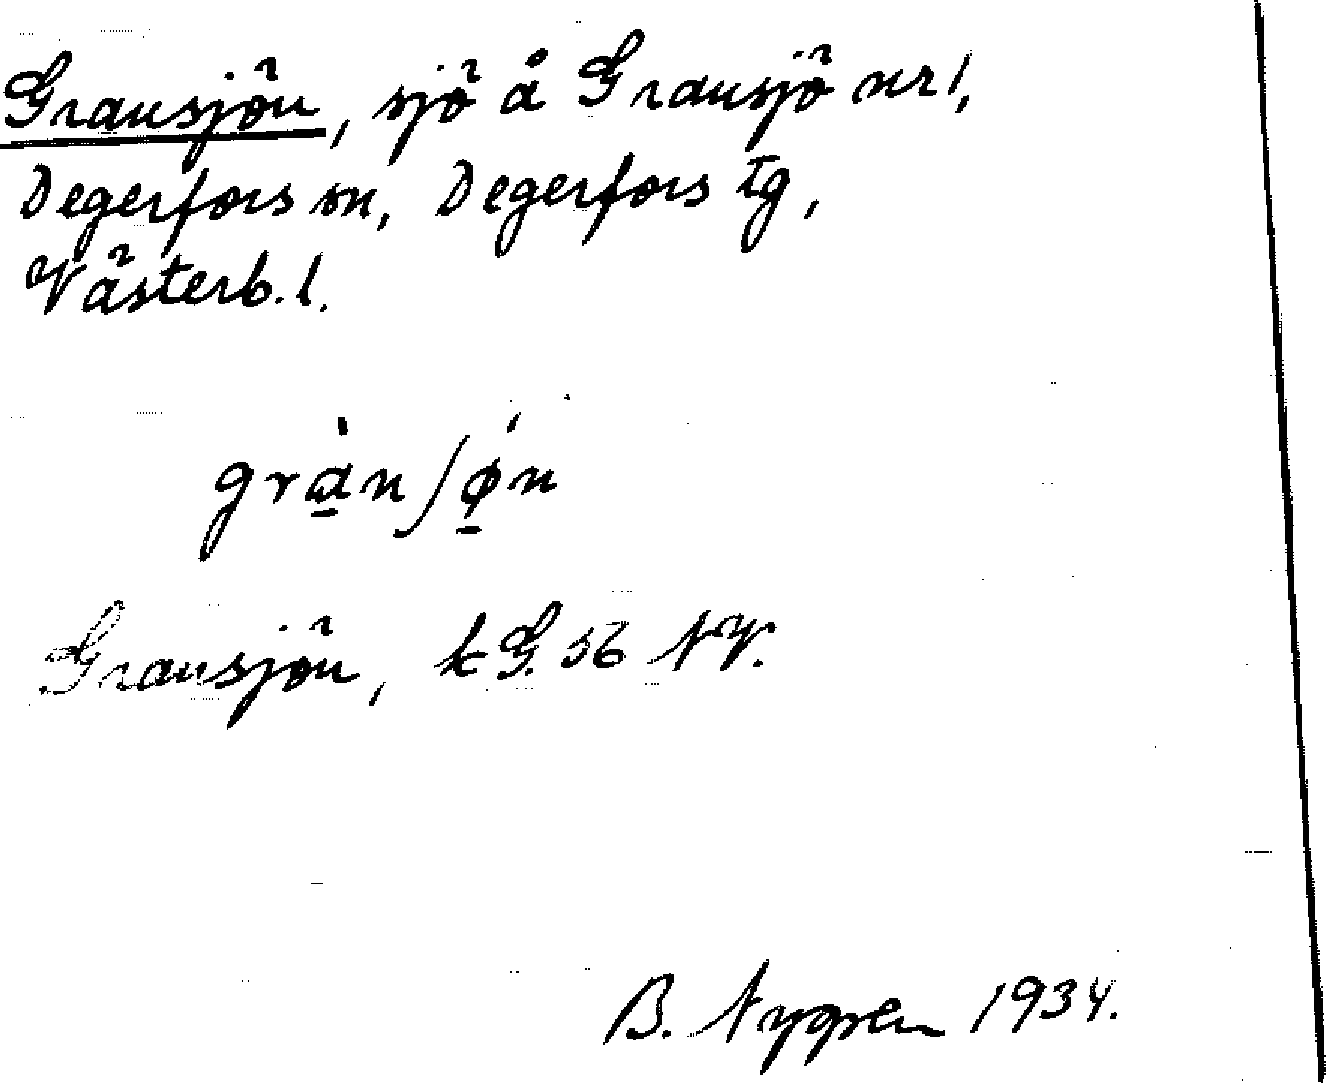 Gransjön, sjö å Gransjö nr 1,
Degerfors sn, Degerfors tg,
Västerb. l.
gràn ʃø̀n
Gransjön, k G. 56 NV.
B. Nygren 1934.